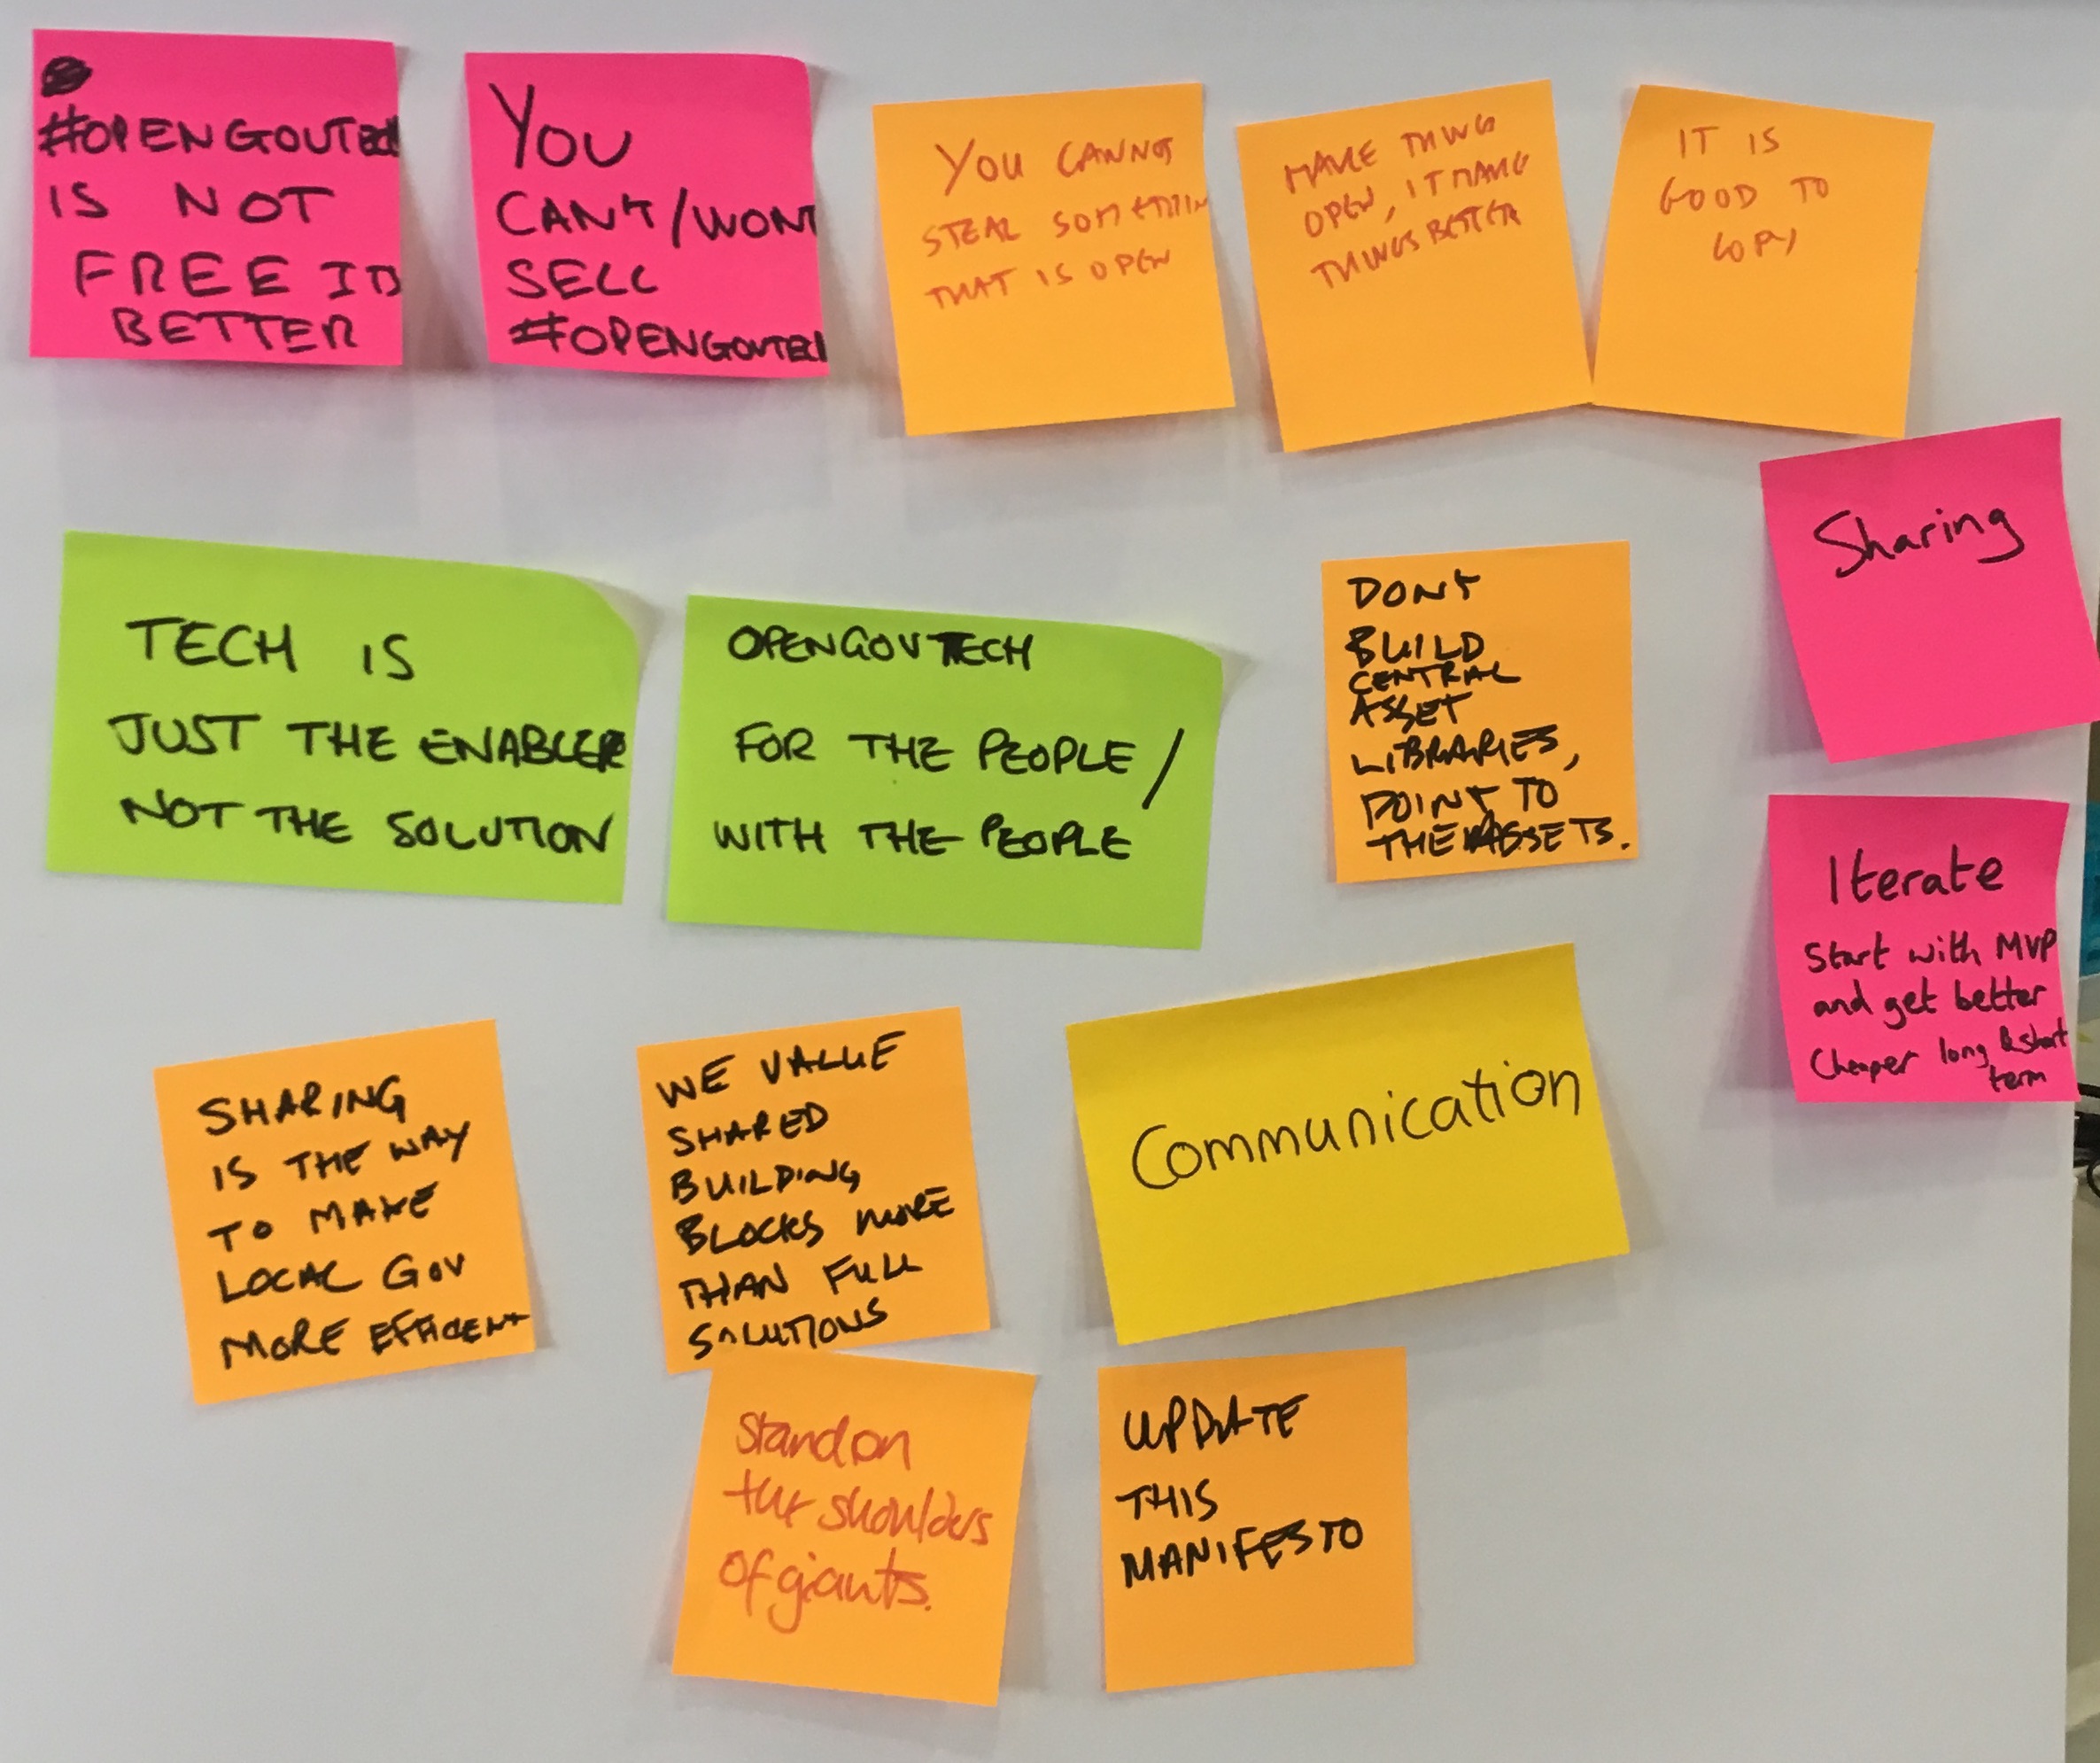 #OPENGOVTECH
IS NOT
FREE ITS
BETTER
YOU
CAN'T/WONT
SELL
#OPENGOVTECH
YOU CANNOT
STEAL SOMETHIN
THAT IS OPEN
MAKE THING
OPEN, IT MAKE
THINGS BETTER
IT IS
GOOD TO
COPY
Sharing
TECH IS
JUST THE ENABLER
NOT THE SOLUTION
OPENGOVTECH
FOR THE PEOPLE /
WITH THE PEOPLE
DON'T
BUILD
CENTRAL
ASSET
LIBRARIES,
POINT TO
THE ASSETS.
Iterate
Start with MVP
and get better
Cheaper long & short
term
SHARING
IS THE WAY
TO MAKE
LOCAL GOV
MORE EFFICIENT
WE VALUE
SHARED
BUILDING
BLOCKS MORE
THAN FULL
SOLUTIONS
Communication
Stand on
the shoulders
of giants.
UPDATE
THIS
MANIFESTO